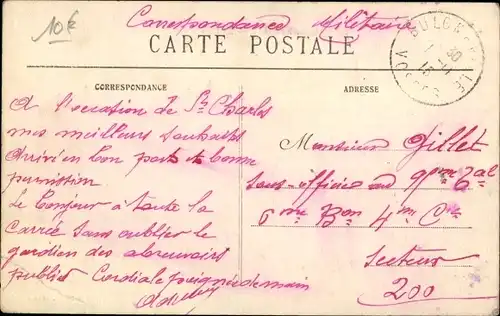 10€
Correspondance Militaire
CARTE POSTALE
CORRESPONDANCE
ADRESSE
VOSGES
A l'occasion de St Charles
mes meilleurs souhaits
Arrivé en bon port et bonne
permission.
Le bonjour à toute la
Carrée sans oublier le
gardien des abreuvoirs
publics Cordiale poignée de main
Monsieur Gillet
Sous-officier au 9eme
6me Bon 4me Cie
Secteur
200